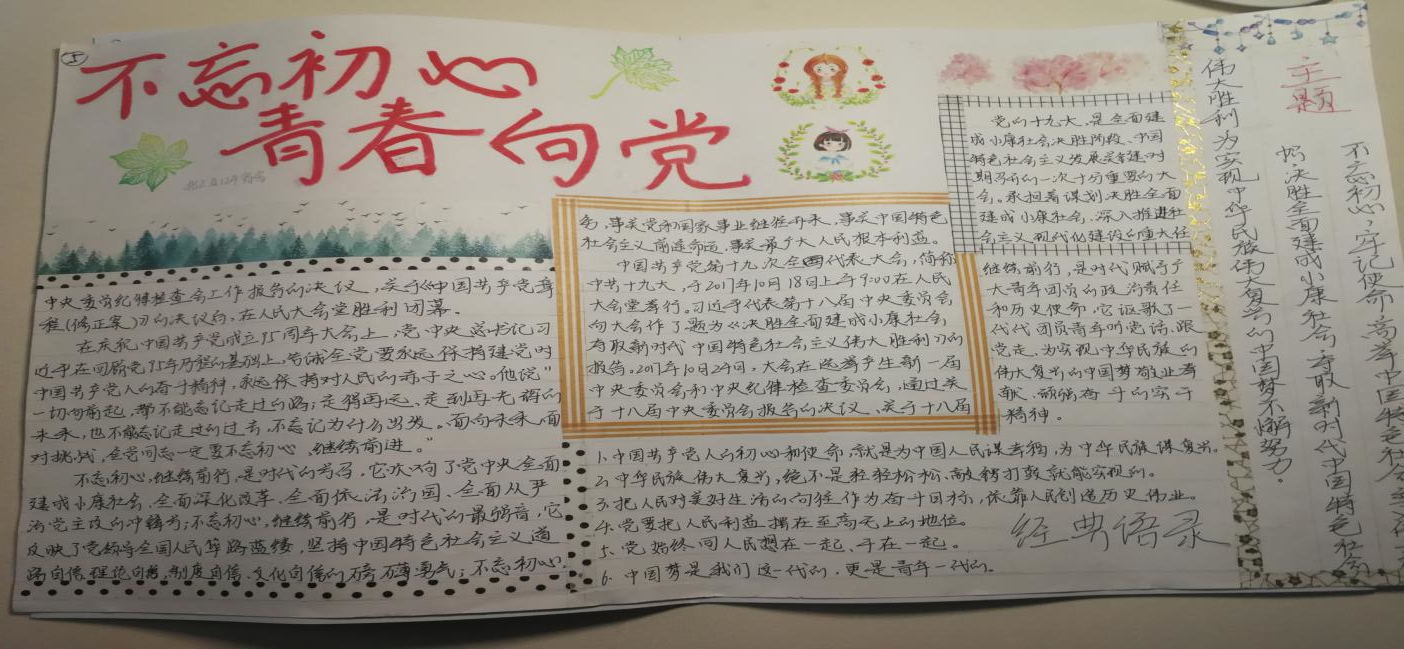 5
不忘初心
青春向党
党的十九大,是全面建
成小康社会决胜阶段、中国
特色社会主义发展关键时
期召开的一次十分重要的大
会。承担着谋划决胜全面
建成小康社会、深入推进社
会主义现代化建设的重大任
务,事关党和国家事业继往开来,事关中国特色
社会主义前途命运,事关最广大人民根本利益。
中国共产党第十九次全国代表大会,简称
中共十九大,于2017年10月18日上午9:00在人民
大会堂举行。习近平代表第十八届中央委员会
向大会作了题为《决胜全面建成小康社会
夺取新时代中国特色社会主义伟大胜利》的
报告。2017年10月24日,大会在选举产生新一届
中央委员会和中央纪律检查委员会,通过关
于十八届中央委员会报告的决议、关于十八届
中央委员纪律检查会工作报告的决议,关于《中国共产党章
程(修正案)》的决议后,在人民大会堂胜利闭幕。
在庆祝中国共产党成立95周年大会上,党中央总书记习
近平在回顾党95年历程的基础上,告诫全党要永远保持建党时
中国共产党人的奋斗精神,永远保持对人民的赤子之心。他说“
一切向前走,都不能忘记走过的路;走得再远、走到再光辉的
未来,也不能忘记走过的过去,不忘记为什么出发。面向未来,面
对挑战,全党同志一定要不忘初心、继续前进。”
不忘初心,继续前行,是时代的号召,它吹响了党中央全面
建成小康社会、全面深化改革、全面依法治国、全面从严
治党主攻的冲锋号;不忘初心,继续前行,是时代的最强音,它
反映了党领导全国人民筚路蓝缕,坚持中国特色社会主义道
路自信、理论自信、制度自信、文化自信的磅礴勇气;不忘初心,
继续前行,是时代赋予广
大青年团员的政治责任
和历史使命,它讴歌了一
代代团员青年听党话、跟
党走,为实现中华民族的
伟大复兴的中国梦敬业奉
献、顽强奋斗的实干
精神。
1.中国共产党人的初心和使命,就是为中国人民谋幸福,为中华民族谋复兴。
2.中华民族伟大复兴,绝不是轻轻松松、敲锣打鼓就能实现的。
3.把人民对美好生活的向往作为奋斗目标,依靠人民创造历史伟业。
4.党要把人民利益摆在至高无上的地位。
5.党始终同人民想在一起、干在一起。
6.中国梦是我们这一代的,更是青年一代的。
经典语录
主题
不忘初心,牢记使命,高举中国特色社会主义伟大
帜,决胜全面建成小康社会,夺取新时代中国特色社会
伟大胜利,为实现中华民族伟大复兴的中国梦不懈努力。